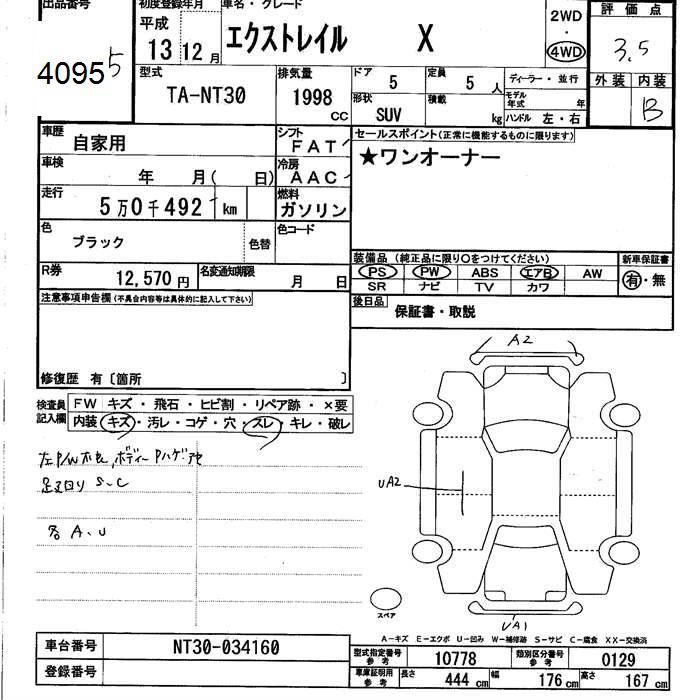 出品番号
40955
初度登録年月
平成
13 12 月
車名・グレード
エクストレイル X
2WD
・
4WD
評価点
3.5
外装 内装
B
型式
TA-NT30
排気量
1998 cc
ドア
5
定員
5 人
ディーラー・並行
形状
SUV
積載
kg
モデル年式 年
ハンドル 左・右
車歴
自家用
シフト
FAT
車検
年 月( 日)
冷房
AAC
走行
5万0千492 km
燃料
ガソリン
色
ブラック
色替
色コード
セールスポイント(正常に機能するものに限ります)
★ワンオーナー
R券
12,570 円
名変通知期限
月 日
装備品 (純正品に限り○をつけてください)
PS PW ABS エアB AW
SR ナビ TV カワ
新車保証書
有・無
後日品
保証書・取説
注意事項申告欄(不具合内容等は具体的に記入して下さい)
修復歴 有〔箇所 〕
検査員記入欄
FW キズ・飛石・ヒビ割・リペア跡・×要
内装 キズ・汚レ・コゲ・穴・スレ・キレ・破レ
S、C
各 A、U
A2
UA2
UA1
スペア
A-キズ E-エクボ U-凹み W-補修跡 S-サビ C-腐食 XX-交換済
車台番号
NT30-034160
登録番号
型式指定番号
参考
10778
類別区分番号
参考
0129
車庫証明用
参考
長さ
444 cm
幅
176 cm
高さ
167 cm